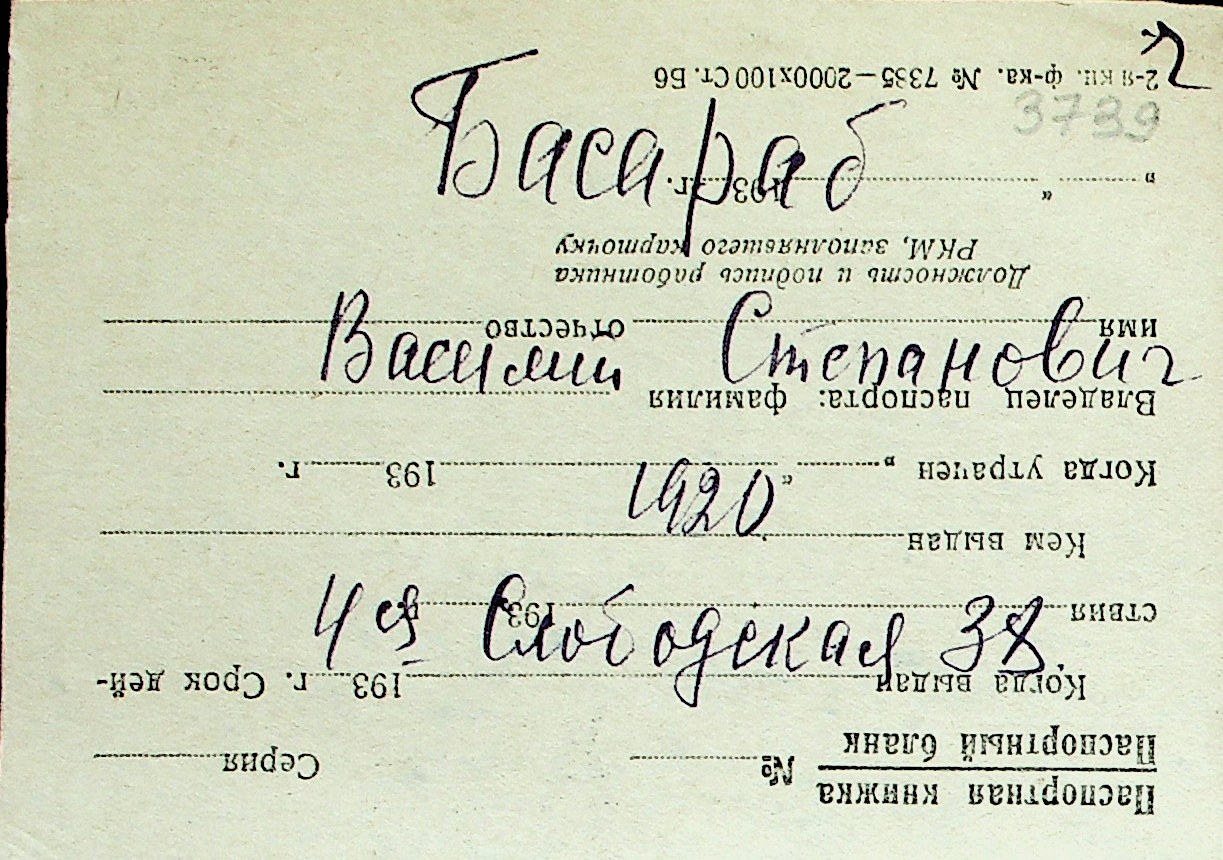 2
2-я кн. ф-ка. № 7335—2000х100 Ст. Б6
3739
Басараб
„ “ 193 г.
РКМ, заполнявшего карточку
Должность и подпись работника
имя отчество
Василий Степанович
Владелец паспорта: фамилия
Когда утрачен „ “ 193 г.
1920
Кем выдан
ствия 193
4ая Слободская 38.
Когда выдан 193 г. Срок дей-
Паспортный бланк
Серия
№
Паспортная книжка